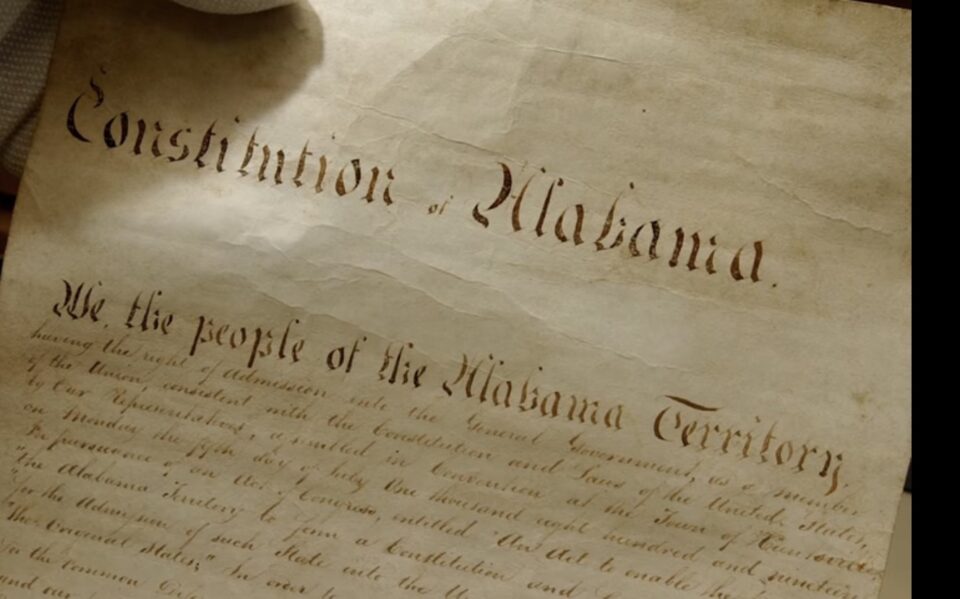 Constitution of Alabama.
We, the people of the Alabama Territory,
having the right of admission into the General Government, as a member
of the Union, consistent with the Constitution and Laws of the United States,
by Our Representatives, assembled in Convention at the Town of Huntsville
on Monday the fifth day of July One thousand eight hundred and nineteen
In pursuance of an Act of Congress, entitled "An Act to enable the
"The Alabama Territory to form a Constitution and
"for the Admission of such State into the
"The Original States;" In order to
for the Common
and our